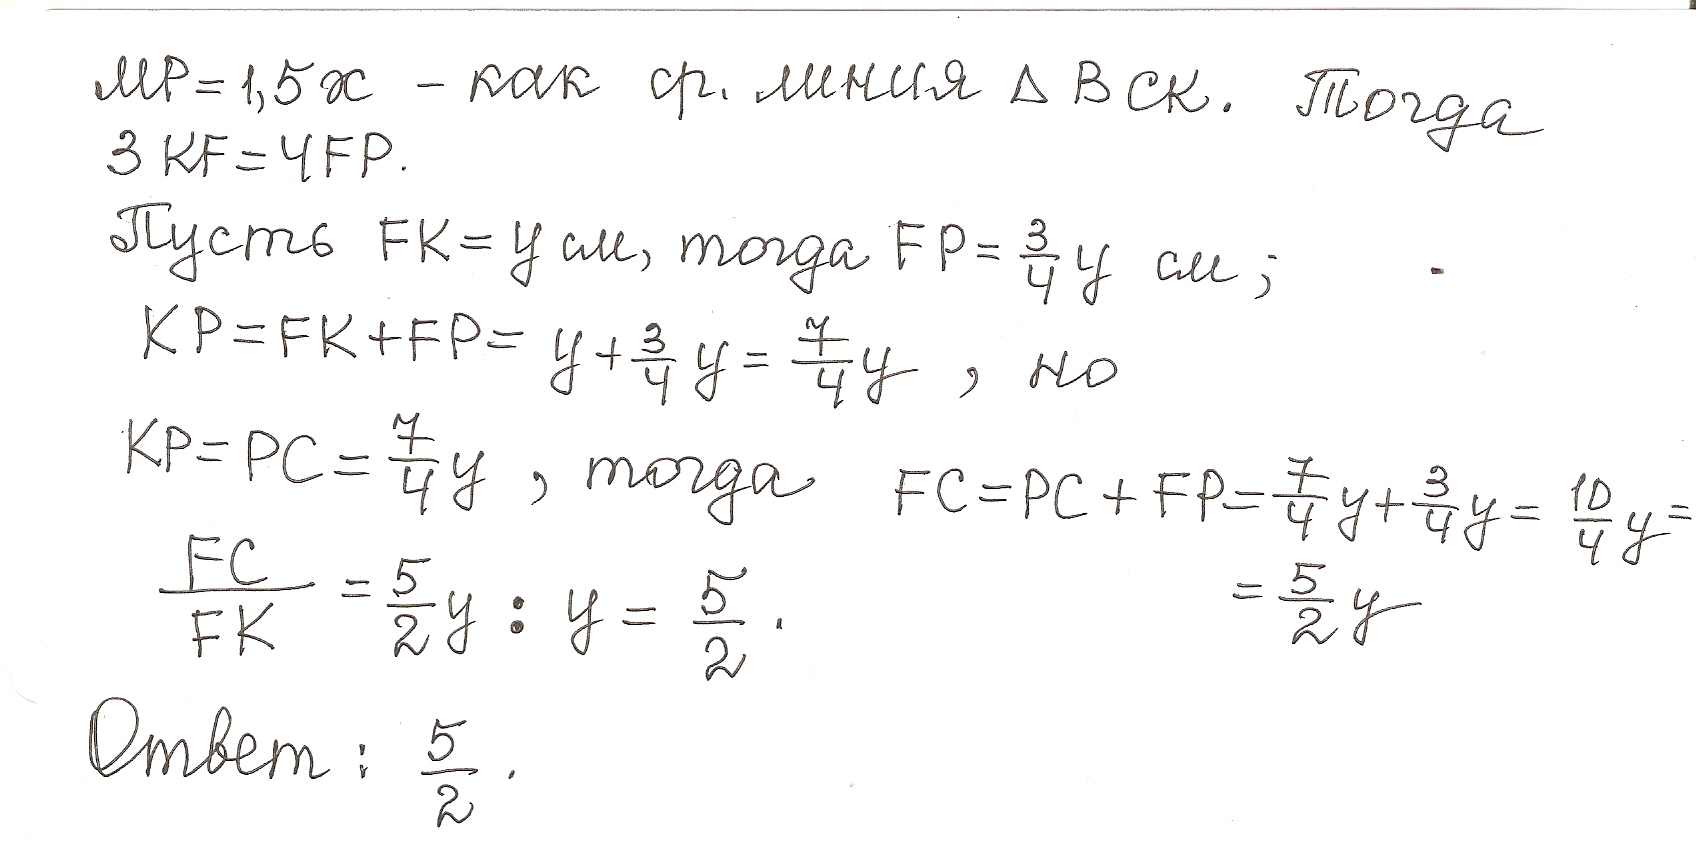 MP=1,5x - как ср. линия Δ BCK. Тогда
3 KF=4FP.
Пусть FK=y см, тогда FP=3/4 y см;
KP=FK+FP= y+3/4 y=7/4 y , но
KP=PC=7/4 y , тогда FC=PC+FP=7/4 y+3/4 y=10/4 y=
=5/2 y
FC/FK =5/2 y : y=5/2.
Ответ: 5/2.